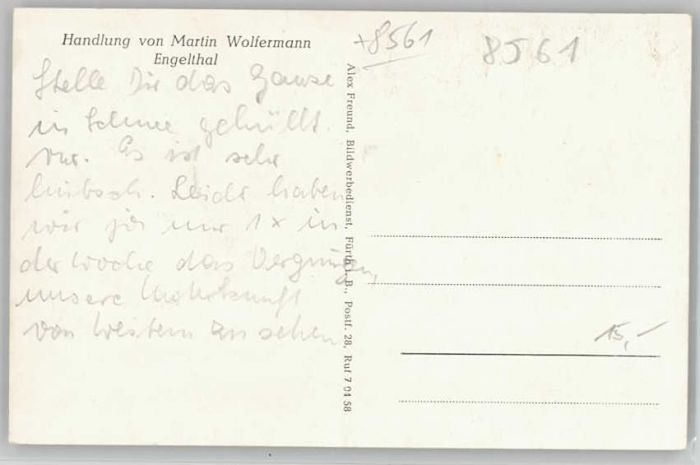 Handlung von Martin Wolfermann
Engelthal
+8561
8561
Stelle Dir das Ganze
in Schnee gehüllt
vor. Es ist sehr
hübsch. Leider haben
wir ja nur 1x in
der Woche das Vergnügen,
unsere
von weitem zu sehen
Alex Freund, Bildwerbedienst, Fürth i. B., Postf. 28, Ruf 7 04 58
15,-